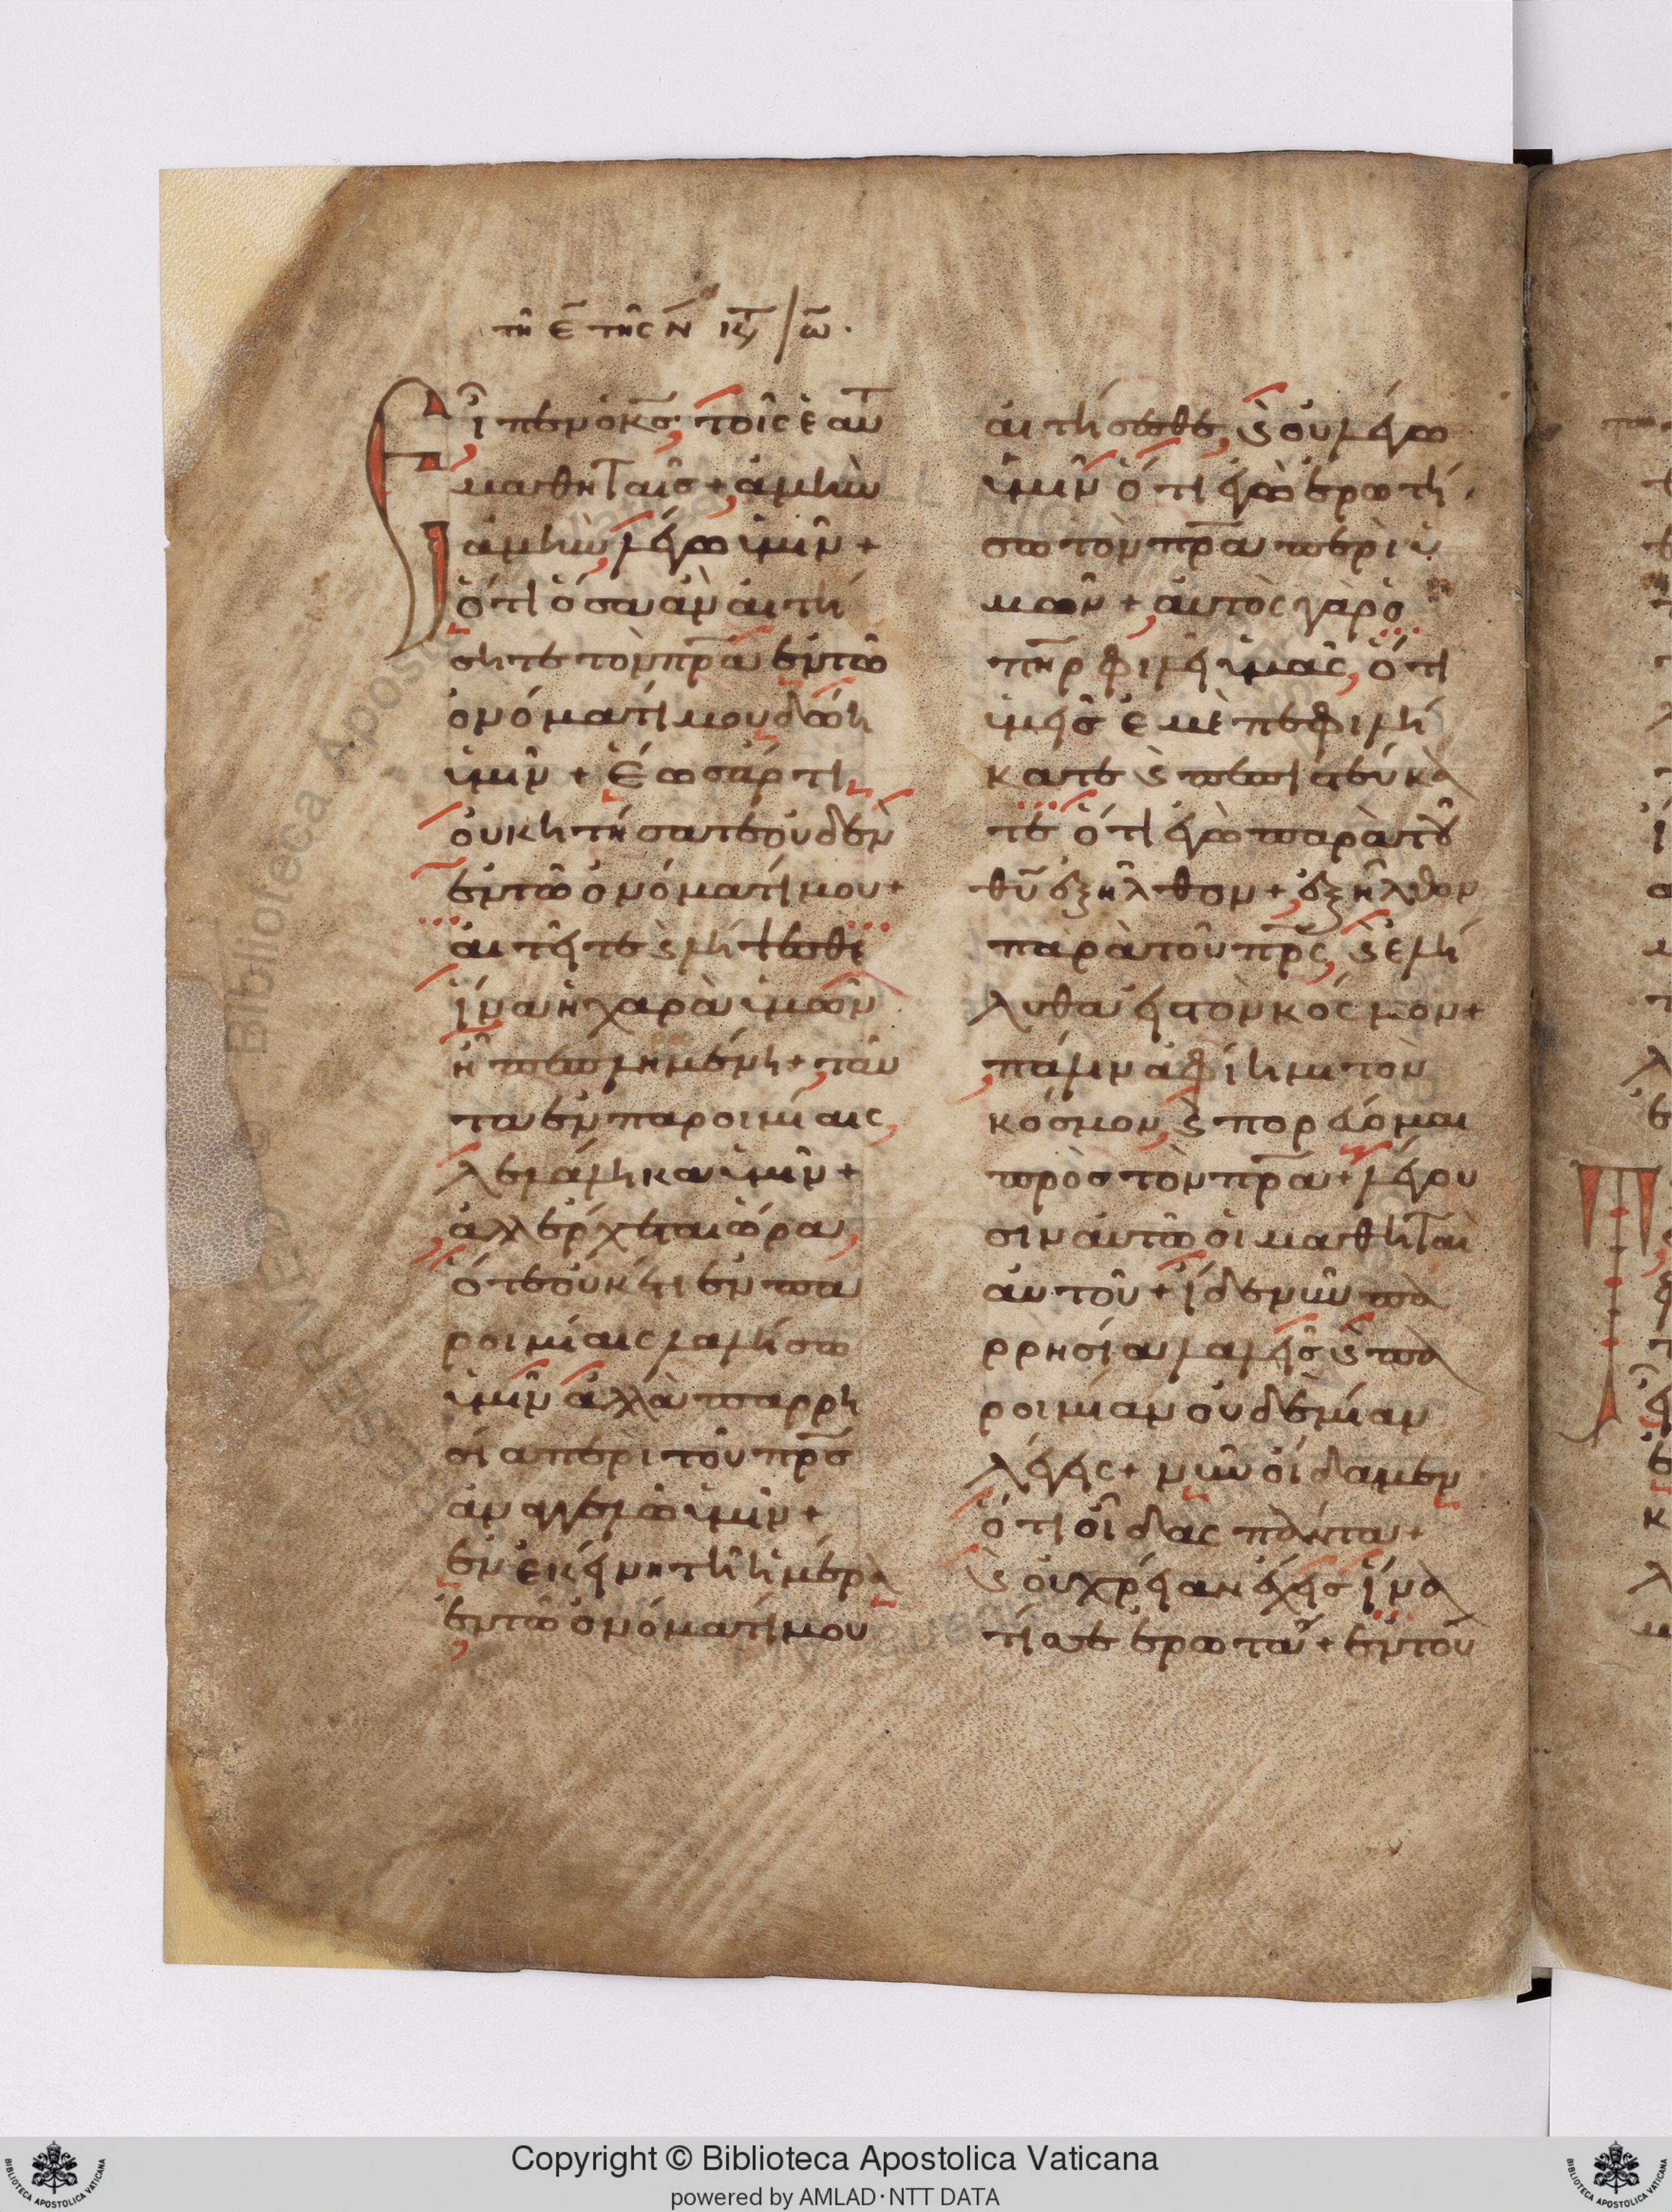 τῆ ε̄ τῆς ν̄ κυ ιω̄.
Εἶπεν ὁ κ̅ς̅· τοῖς ἑαυ
μαθηταῖς + ἀμὴν
ἀμὴν λέγω ὑμῖν +
ὅτι ὅσα ἀν αἰτή
σητε τὸν π̅ρ̅α̅ ἐν τῶ
ὀνόματί μου δώη
ὑμῖν + ἕως ἄρτι
οὐκ ἠτήσατε οὐδὲν
ἐν τῶ ὀνόματί μου +
αἰτεῖτε ϗ λήψεσθε
ἵνα ἡ χαρὰ ὑμῶν
ἦ πεπλημένη + ταῦ
τα ἐν παροιμίαις,
λελάληκα ὑμῖν +
ἀλλ ἔρχεται ὥρα,
ὅτε οὐκέτι ἐν πα
ροιμίαις λαλήσω
ὑμῖν ἀλλὰ παρρη
σία περὶ τοῦ π̅ρ̅ς̅
ἀναγγελῶ ὑμῖν +
ἐν ἐκείνη τῆ ἡμέρα
ἐν τῶ ὀνόματί μου
αἰτήσεσθε, ϗ οὐ λέγω
ὑμῖν ὅτι ἐγὼ ἐρωτή
σω τὸν π̅ρ̅α̅ περὶ ὑ
μῶν + αὐτὸς γὰρ ὁ
π̅η̅ρ̅ φιλεῖ ὑμᾶς, ὅτι
ὑμεῖς ἐμὲ πεφιλή
κατε ϗ πεπιστεύκα
τε ὅτι ἐγὼ παρὰ τοῦ
θ̅υ̅ ἐξῆλθον + ἐξῆλθον
παρὰ τοῦ π̅ρ̅ς̅, ϗ ἐλή
λυθα εἰς τὸν κόσμον +
πάλιν ἀφίημι τὸν
κόσμον, ϗ πορεύομαι
πρὸς τὸν π̅ρ̅α̅ + λέγου
σιν αὐτῶ οἱ μαθηταὶ
αὐτοῦ + ἴδε νῦν πα
ρρησία λαλεῖς ϗ πα
ροιμίαν οὐδεμίαν
λέγεις + νῦν οἴδαμεν
ὅτι οἶδας πάντα +
ϗ οὐ χρείαν ἔχεις ἵνα
τίς σε ἐρωτᾶ + ἐν τού
Copyright © Biblioteca Apostolica Vaticana
powered by AMLAD·NTT DATA